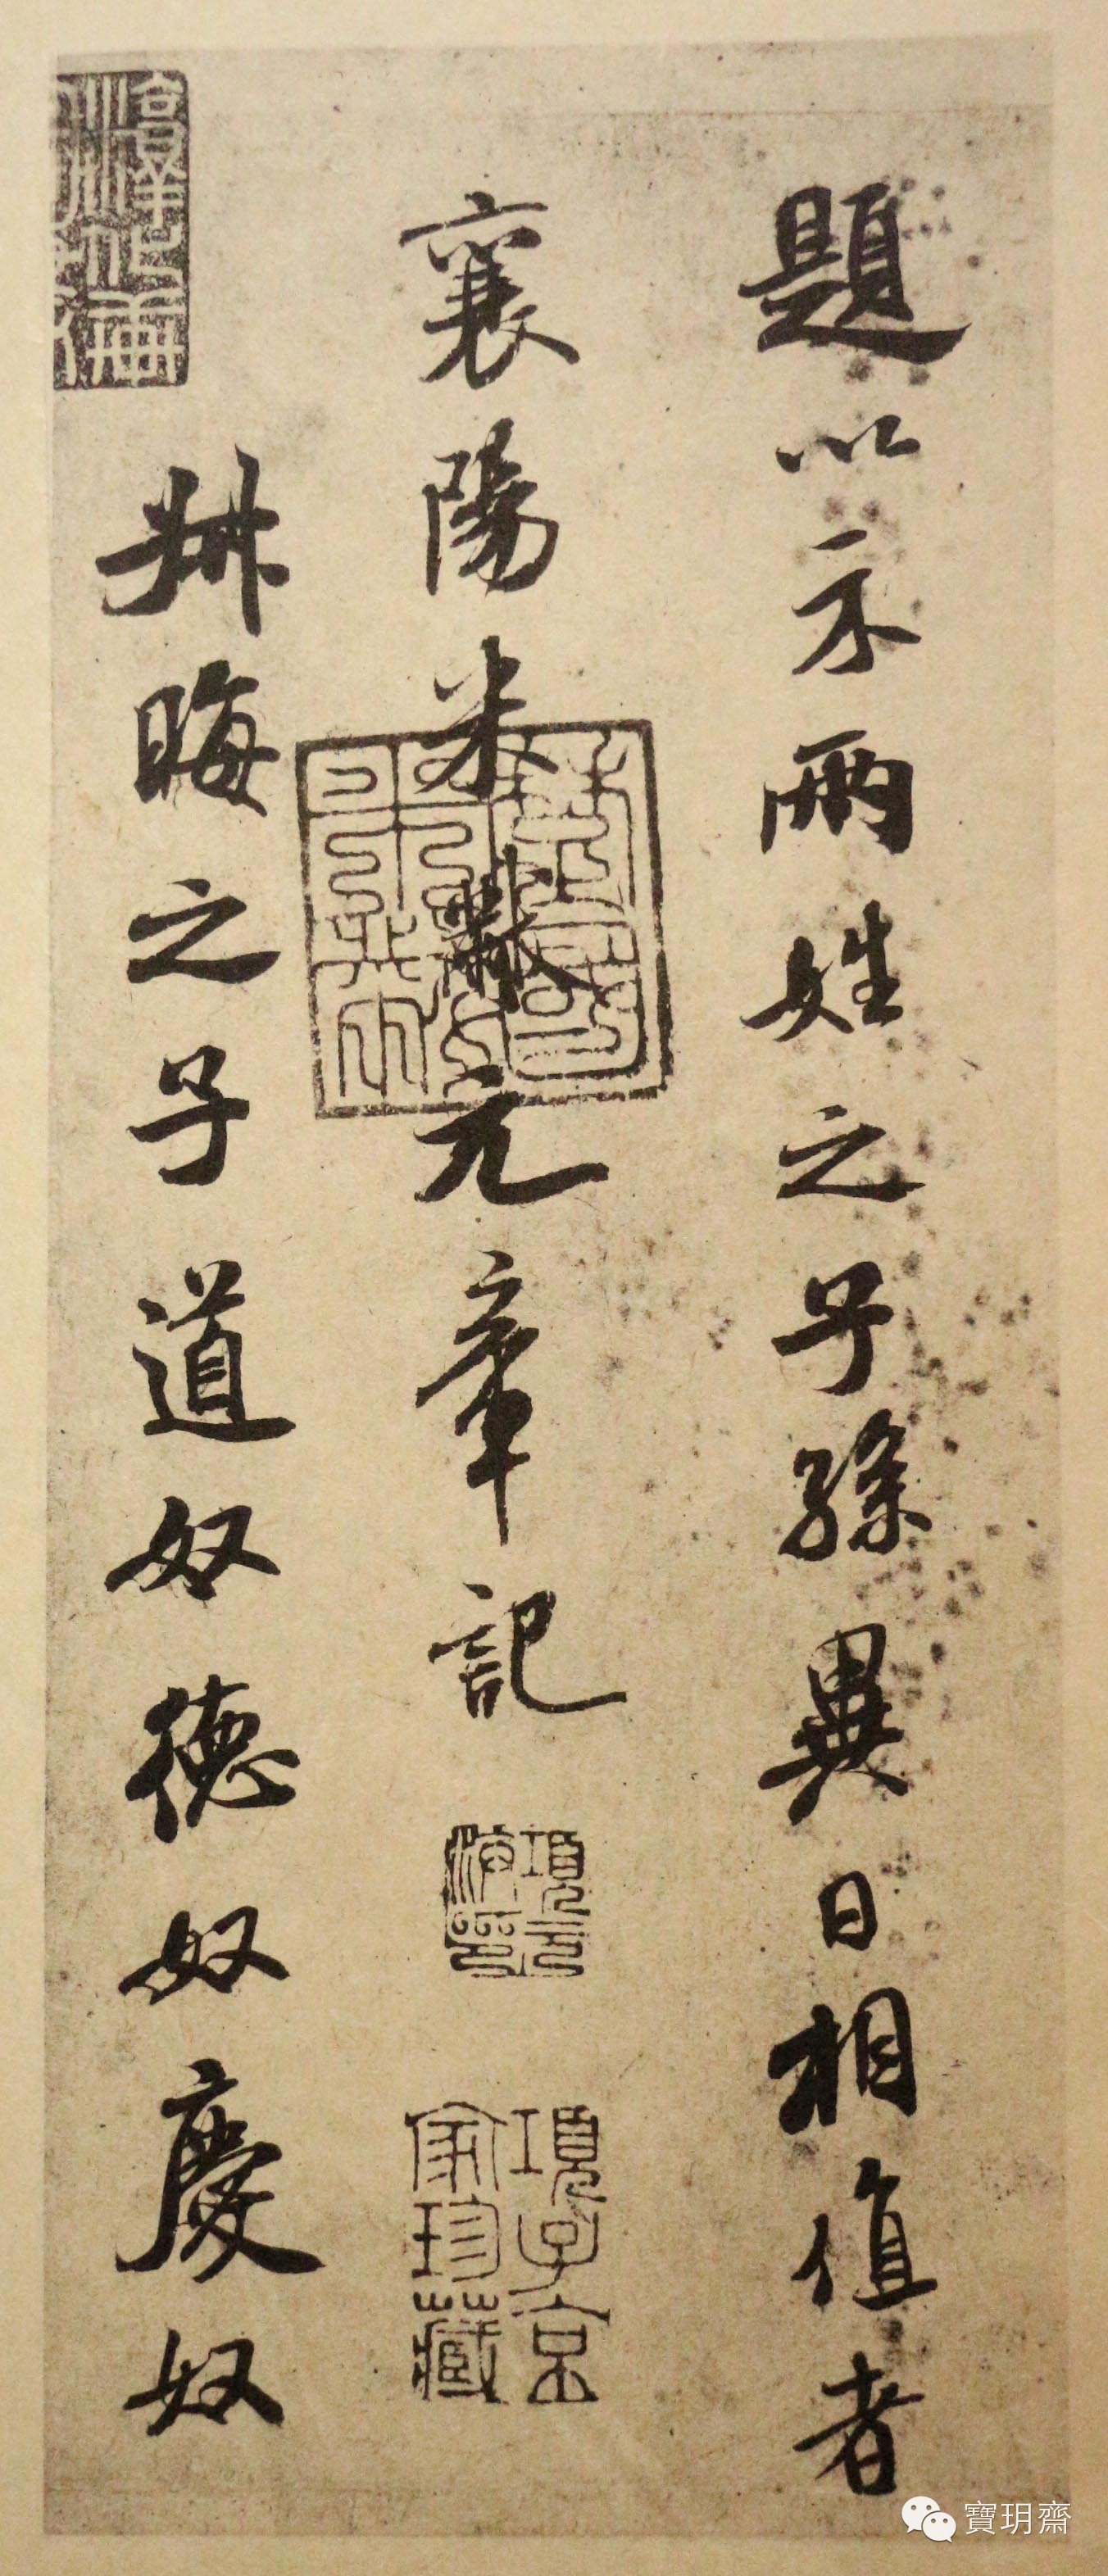 題以示兩姓之子孫異日相值者
襄陽米黻元章記
叔晦之子道奴德奴慶奴
項子京家珍藏
寶玥齋